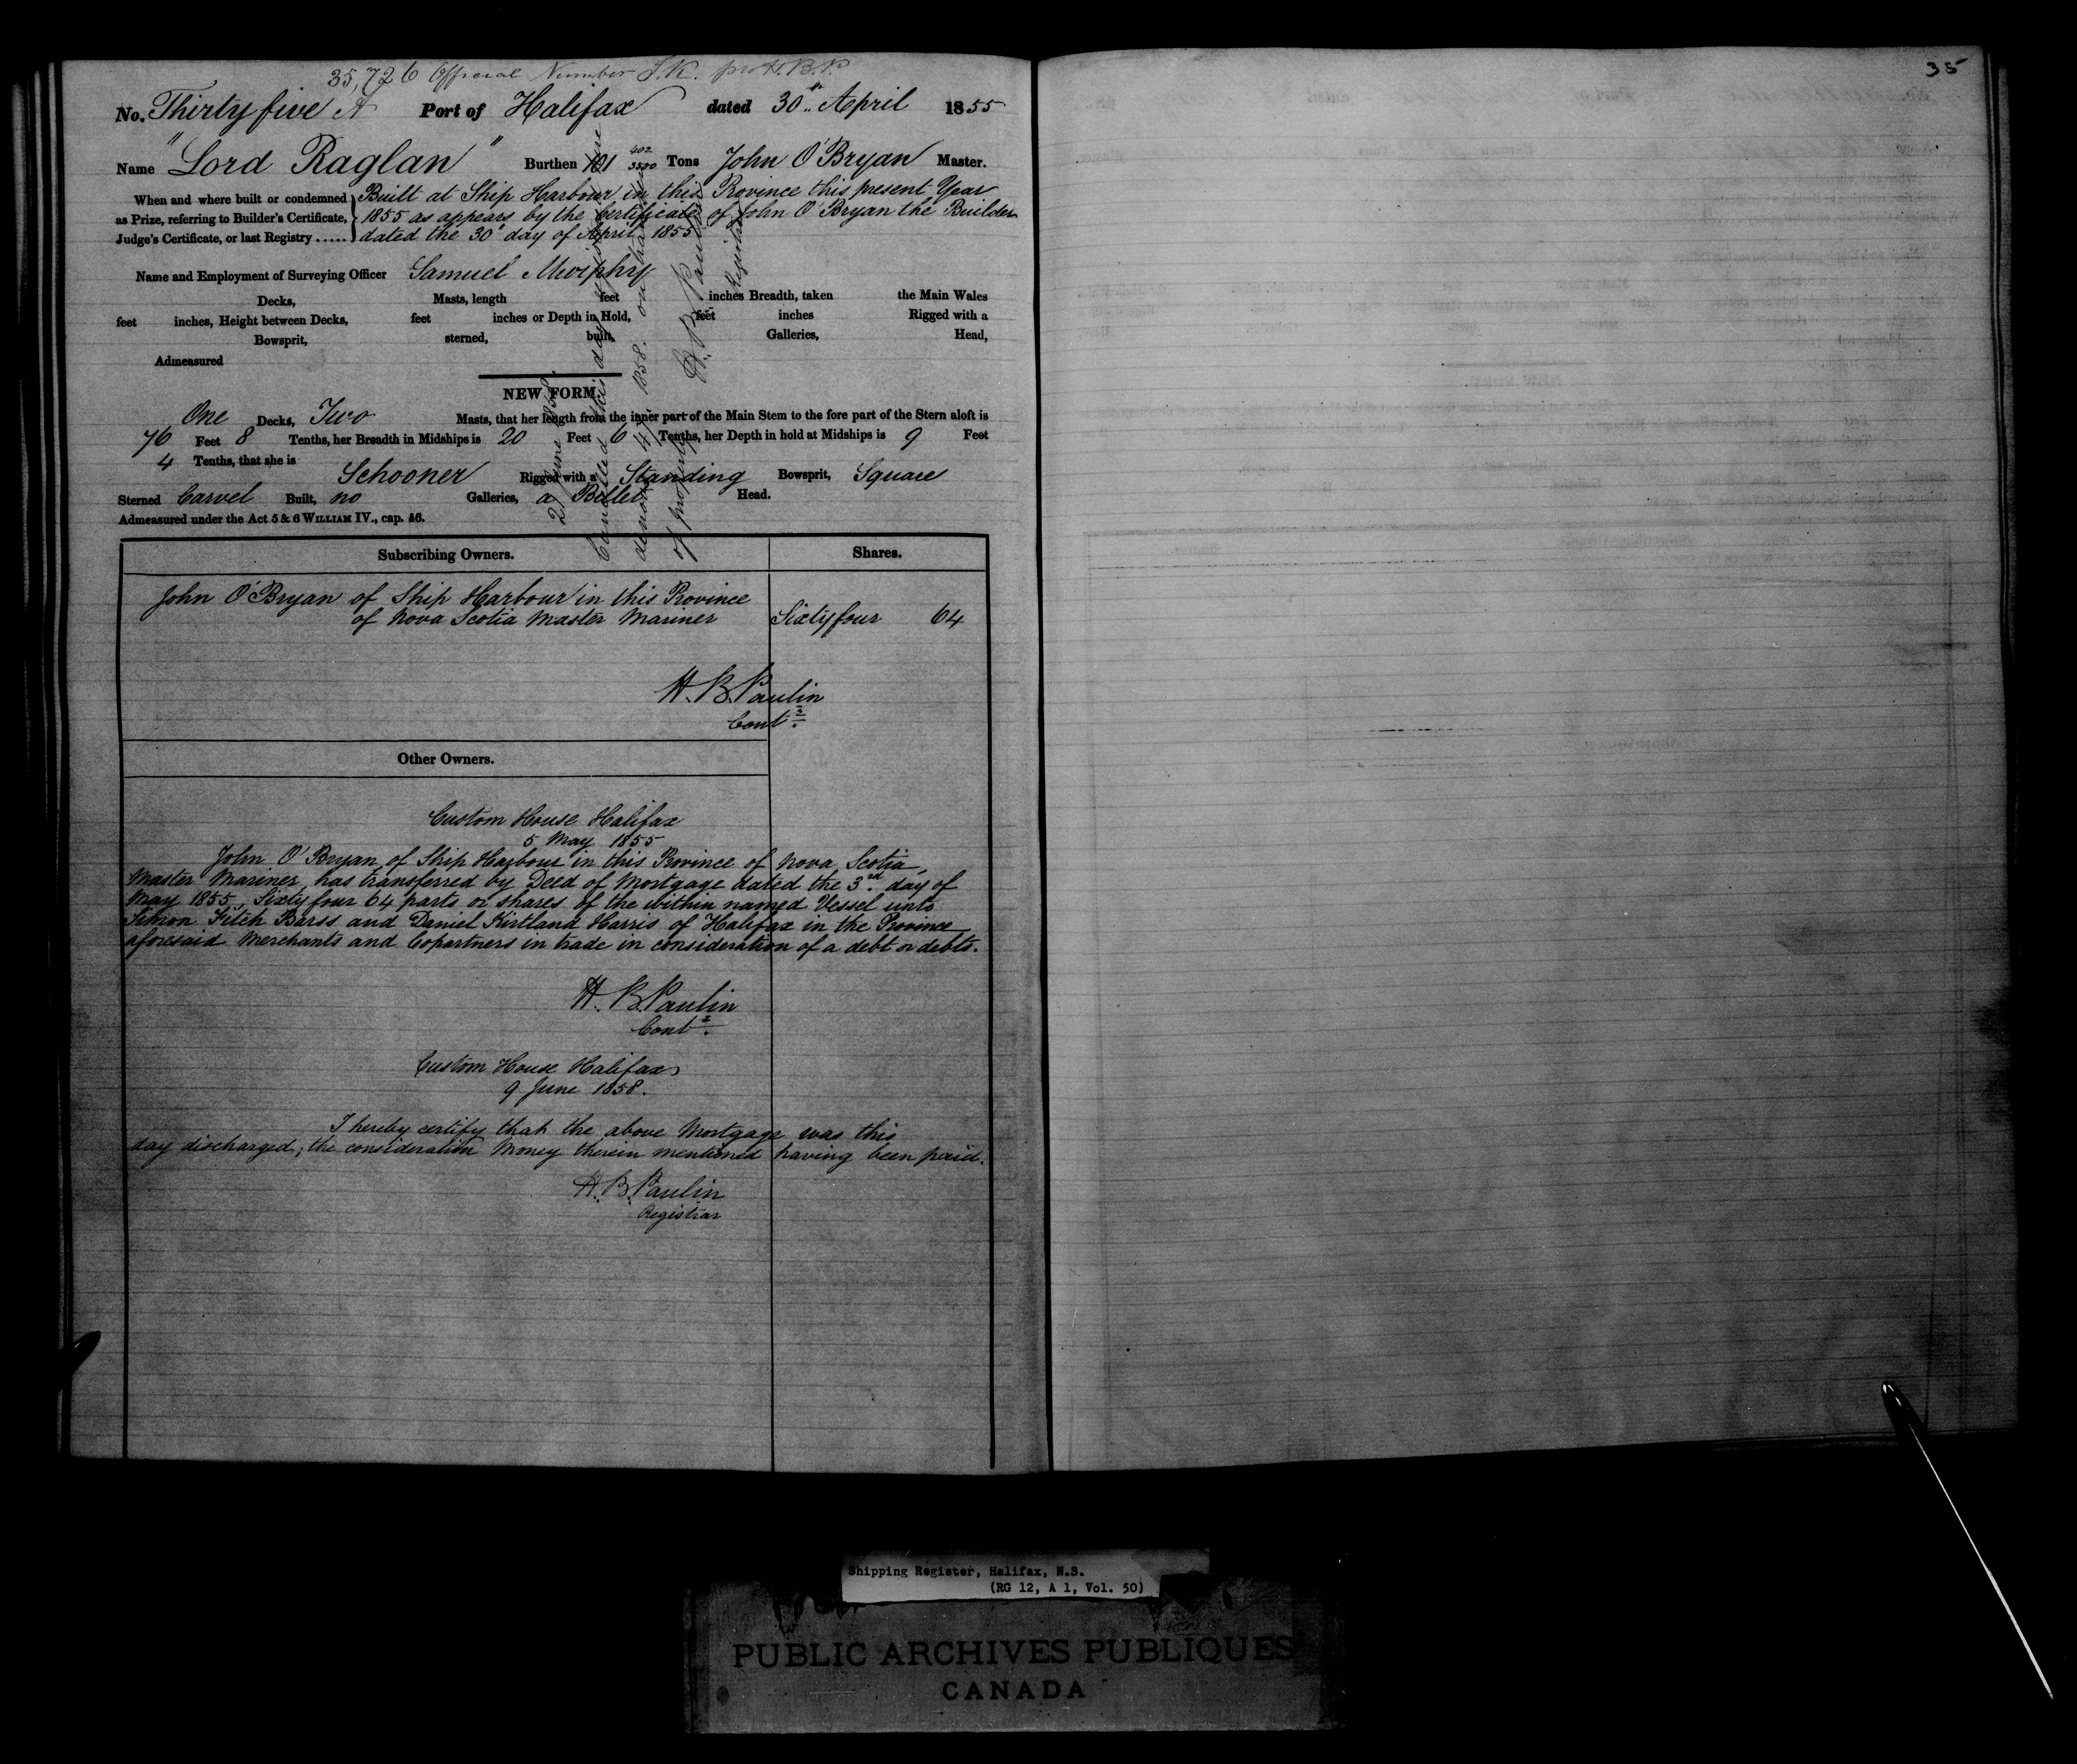 35,726 Official Number J.K. pro H.B.P.
35
No. Thirty five A Port of Halifax dated 30th April 1855
Name "Lord Raglan" Burthen 101 402/3500 Tons John O'Bryan Master.
When and where built or condemned as Prize, referring to Builder's Certificate, Judge's Certificate, or last Registry .....
Built at Ship Harbour in this Province this present Year
1855 as appears by the Certificate of John O'Bryan the Builder
dated the 30th day of April 1855
Name and Employment of Surveying Officer Samuel Murphy
Decks, Masts, length feet inches Breadth, taken the Main Wales
feet inches, Height between Decks, feet inches or Depth in Hold, feet inches Rigged with a
Bowsprit, sterned, built, Galleries, Head,
Admeasured
NEW FORM.
One Decks, Two Masts, that her length from the inner part of the Main Stem to the fore part of the Stern aloft is
76 Feet 8 Tenths, her Breadth in Midships is 20 Feet 6 Tenths, her Depth in hold at Midships is 9 Feet
4 Tenths, that she is Schooner Rigged with a Standing Bowsprit, Square
Sterned Carvel Built, no Galleries, a Billet Head.
Admeasured under the Act 5 & 6 WILLIAM IV., cap. 56.
21 June 1858.
Cancelled this day
1858. on
of property
H. B. Paulin
Registrar
Subscribing Owners. Shares.
John O'Bryan of Ship Harbour in this Province
of Nova Scotia Master Mariner Sixty four 64
H. B. Paulin
Contr.
Other Owners.
Custom House Halifax
5 May 1855
John O'Bryan of Ship Harbour in this Province of Nova Scotia
Master Mariner, has transferred by Deed of Mortgage dated the 3rd. day of
May 1855, Sixty four 64 parts or shares of the within named Vessel unto
Simon Fitch Barss and Daniel Kirtland Harris of Halifax in the Province
aforesaid Merchants and Copartners in trade in consideration of a debt or debts.
H. B. Paulin
Contr.
Custom House Halifax
9 June 1858.
I hereby certify that the above Mortgage was this
day discharged; the consideration Money therein mentioned having been paid.
H. B. Paulin
Registrar
Shipping Register, Halifax, N.S.
(RG 12, A 1, Vol. 50)
PUBLIC ARCHIVES PUBLIQUES
CANADA